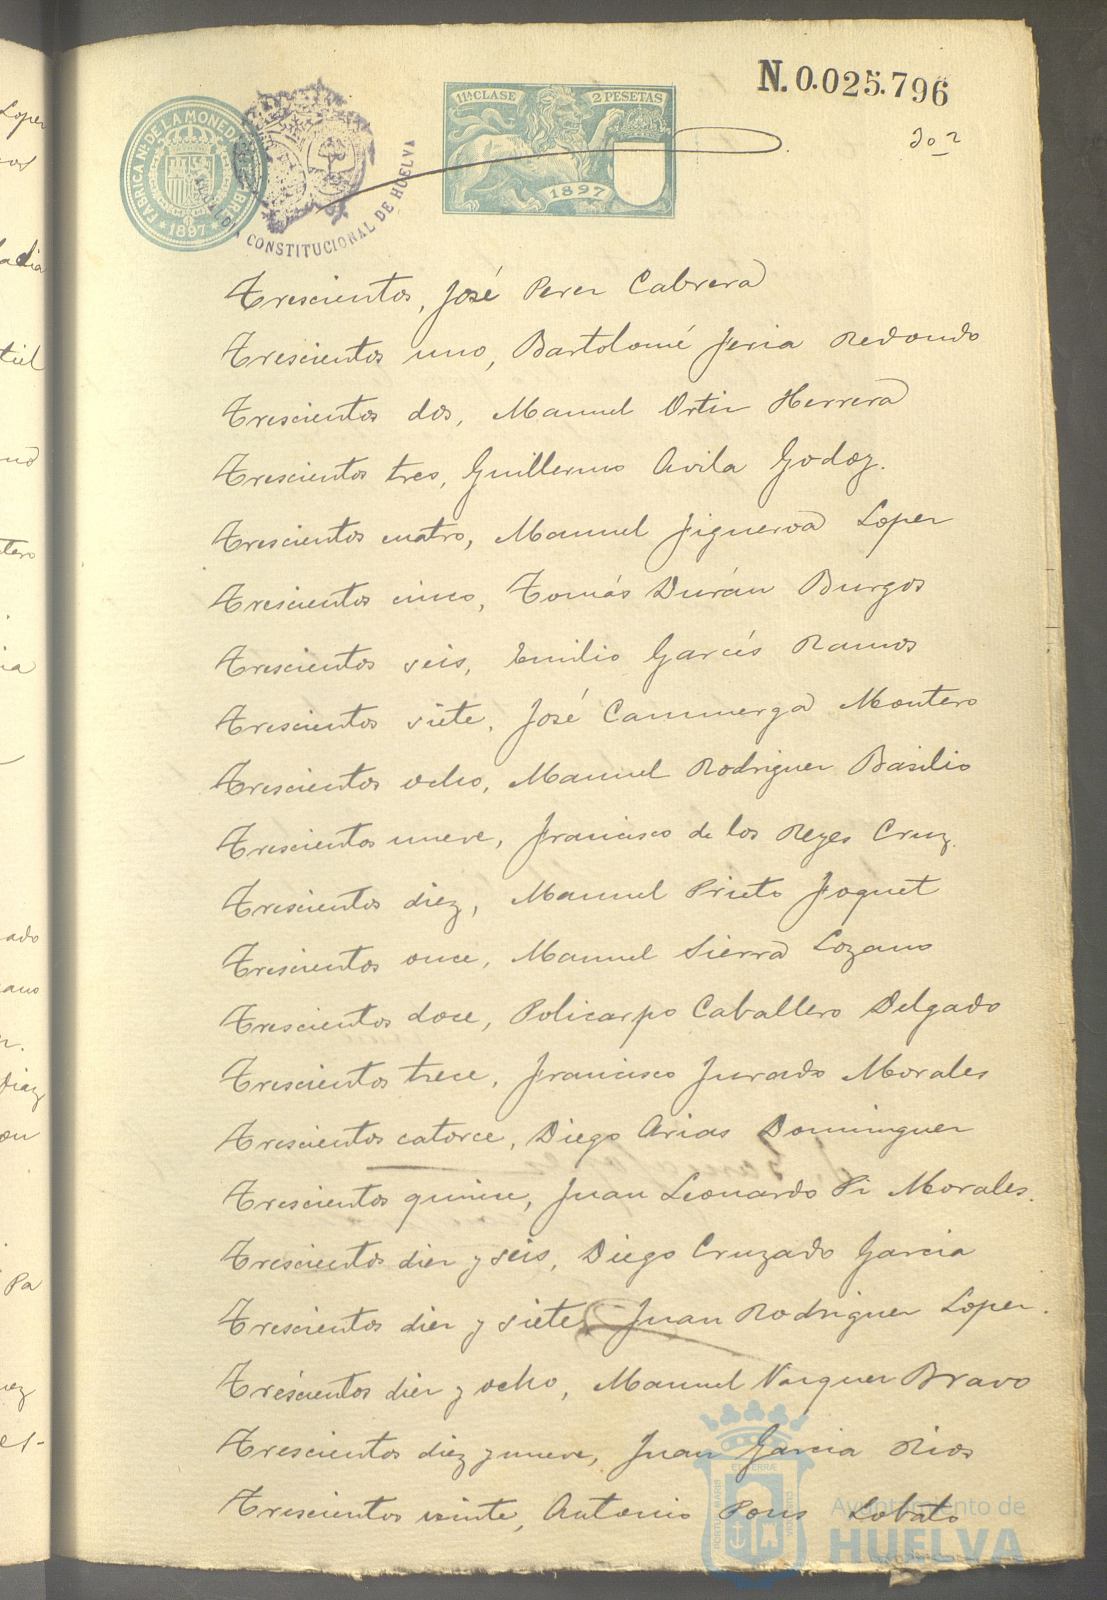 N. 0.025.796
11ª CLASE 2 PESETAS
FABRICA Nª DE LA MONEDA
1897
CONSTITUCIONAL DE HUELVA
1897
Trescientos, José Perez Cabrera
Trescientos uno, Bartolomé Feria Redondo
Trescientos dos, Manuel Ortiz Herrera
Trescientos tres, Guillermo Avila Godoy.
Trescientos cuatro, Manuel Figueroa Lopez
Trescientos cinco, Tomás Durán Burgos
Trescientos seis, Emilio Garcés Ramos
Trescientos siete, José Montero
Trescientos ocho, Manuel Rodriguez Basilio
Trescientos nueve, Francisco de los Reyes Cruz.
Trescientos diez, Manuel Prieto
Trescientos once, Manuel Sierra Lozano
Trescientos doce, Policarpo Caballero Delgado
Trescientos trece, Francisco Jurado Morales
Trescientos catorce, Diego Arias Dominguez
Trescientos quince, Juan Leonardo Pi Morales.
Trescientos diez y seis, Diego Cruzado Garcia
Trescientos diez y siete, Juan Rodriguez Lopez.
Trescientos diez y ocho, Manuel Vazquez Bravo
Trescientos diez y nueve, Juan Garcia Rios
Trescientos veinte, Antonio Pons Lobato
Ayuntamiento de
HUELVA